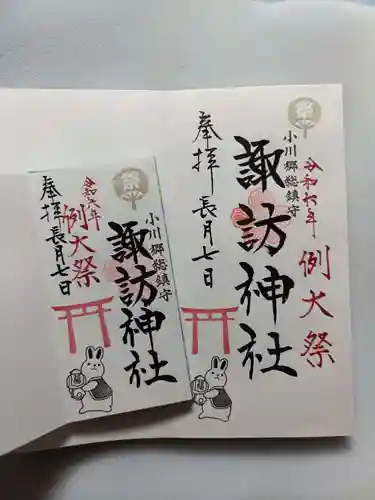 祭
令和六年
例大祭
小川郷総鎮守
諏訪神社
奉拝
長月七日
祭
小川郷総鎮守
諏訪神社
令和六年
例大祭
奉拝
長月七日